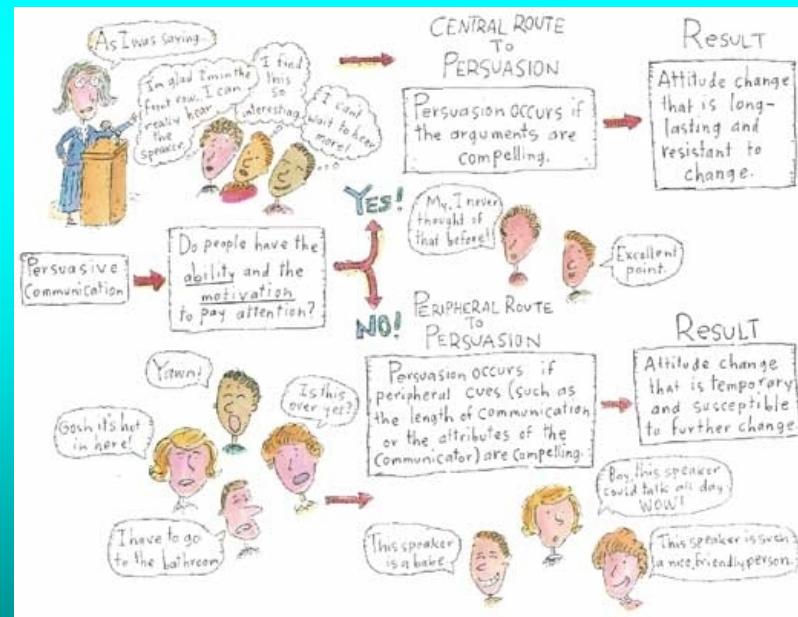 As I was saying...
I'm glad I'm in the
front row. I can
really hear
the
speaker.
I find
this
so
interesting.
I can't
wait to hear
more!
CENTRAL ROUTE
TO
PERSUASION
Persuasion occurs if
the arguments are
compelling.
RESULT
Attitude change
that is long-
lasting and
resistant to
change.
YES!
My, I never
thought of
that before!!
Excellent
point.
Persuasive
Communication
Do people have the
ability and the
motivation
to pay attention?
NO!
PERIPHERAL ROUTE
TO
PERSUASION
Persuasion occurs if
peripheral cues (such as
the length of communication
or the attributes of the
communicator) are compelling.
RESULT
Attitude change
that is temporary
and susceptible
to further change.
Yawn!
Is this
over yet?
Gosh it's hot
in here!
I have to go
to the bathroom
This speaker
is a babe.
Boy, this speaker
could talk all day.
WOW!
This speaker is such
a nice, friendly person.